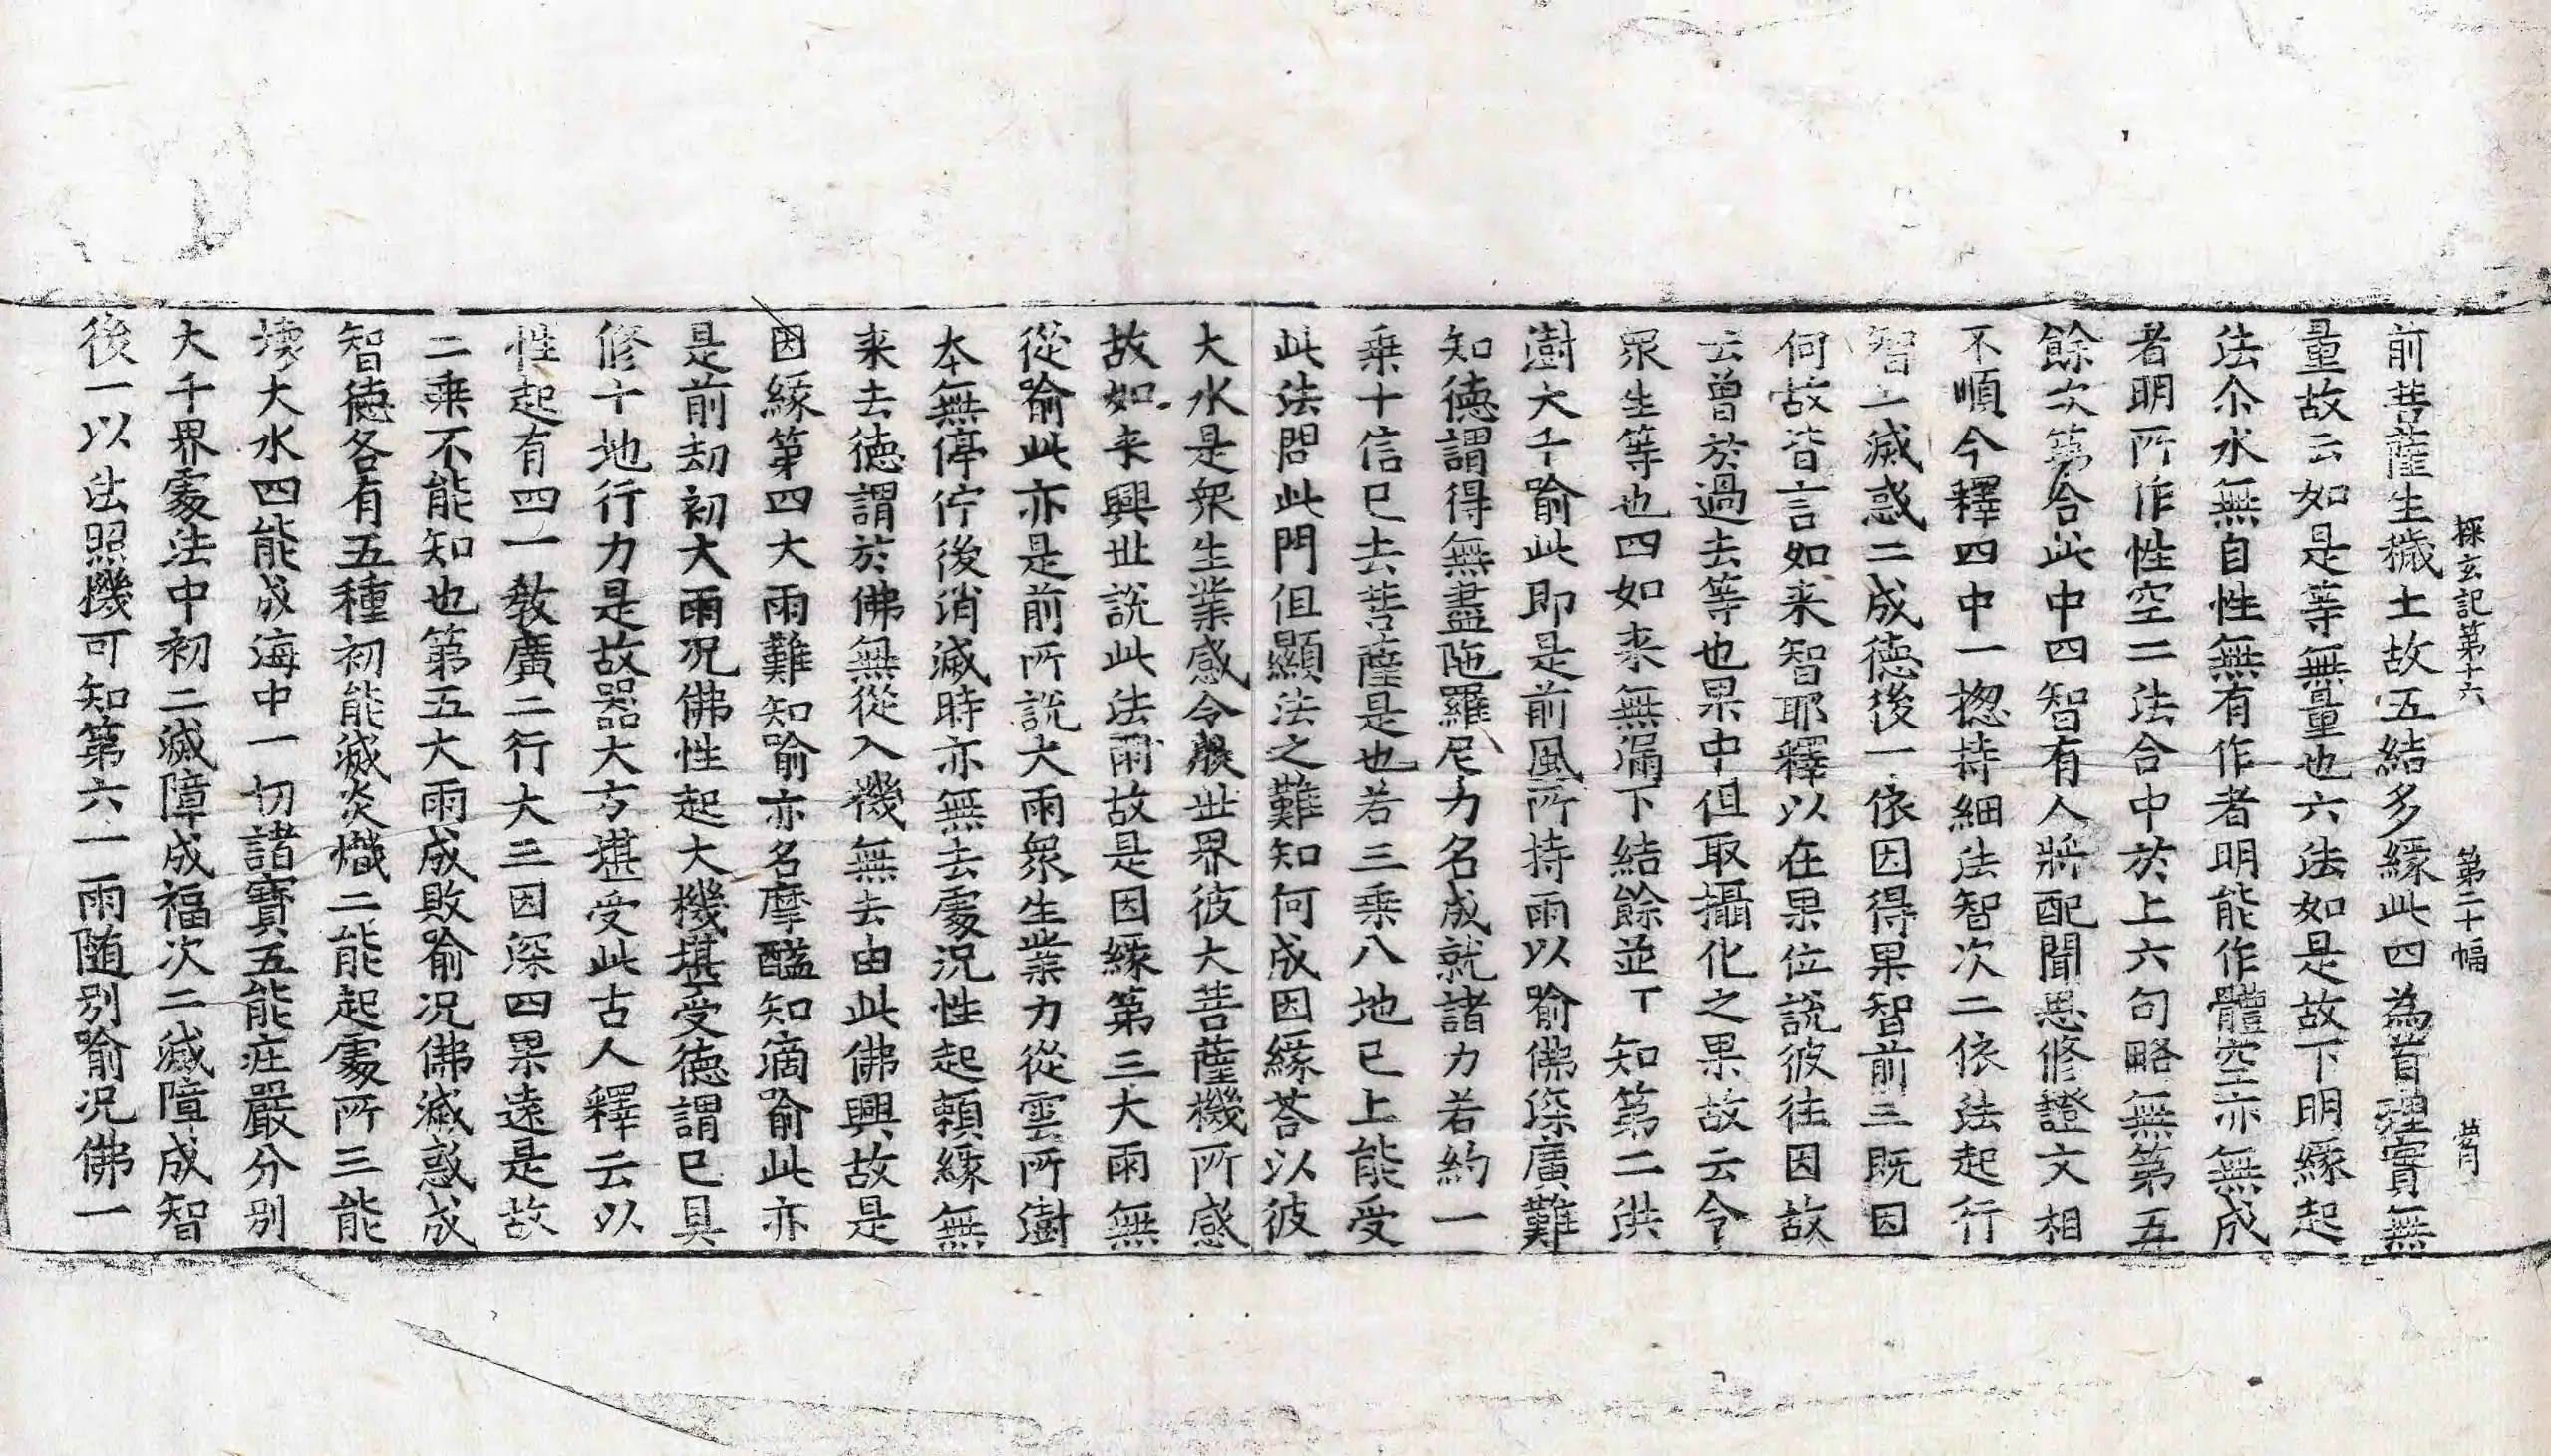 探玄記第十六 第二十幅
前菩薩生穢土故五結多緣此四為首理實無
量故云如是等無量也六法如是故下明緣起
法尒水無自性無有作者明能作體空亦無成
者明所作性空二法合中於上六句略無第五
餘次第合此中四智有人將配聞思修證文相
不順今釋四中一揔持細法智次二依法起行
智一滅惑二成德後一依因得果智前三既因
何故皆言如来智耶釋以在果位說彼往因故
云曾於過去等也果中但取攝化之果故云令
眾生等也四如来無漏下結餘並丁知第二洪
澍大千喻此即是前風所持雨以喻佛深廣難
知德謂得無盡陁羅尼力名成就諸力若約一
乗十信已去菩薩是也若三乗八地已上能受
此法問此門但顯法之難知何成因緣荅以彼
大水是眾生業感令般世界彼大菩薩機所感
故如来興世說此法雨故是因緣第三大雨無
從喻此亦是前所說大雨眾生業力從雲所澍
本無停佇後消滅時亦無去處況性起頼緣無
来去德謂於佛無從入機無去由此佛興故是
因緣第四大雨難知喻亦名摩醯知滴喻此亦
是前劫初大雨況佛性起大機堪受德謂已具
修十地行力是故器大方堪受此古人釋云以
性起有四一教廣二行大三因深四果遠是故
二乗不能知也第五大雨成敗喻况佛滅惑成
智德各有五種初能滅炎熾二能起處所三能
壊大水四能成海中一切諸寶五能庄嚴分别
大千界處法中初二滅障成福次二滅障成智
後一以法照機可知第六一雨随别喻况佛一